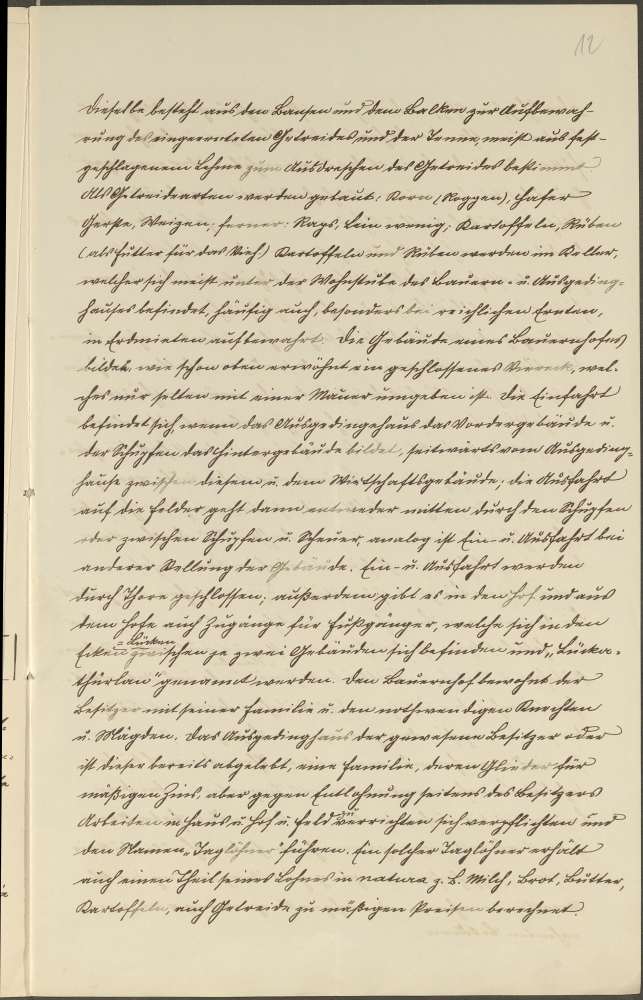 12
Dieselbe besteht aus den Bansen und dem Balken zur Aufbewah-
rung des eingeernteten Getreides und der Tenne, meist aus fest-
geschlagenem Lehme zum Ausdreschen des Getreides bestimmt
Als Getreidearten werden gebaut: Korn (Roggen), Hafer
Gerste, Weizen; ferner: Raps, Lein wenig, Kartoffeln, Rüben
(als Futter für das Vieh.) Kartoffeln und Rüben werden im Keller,
welcher sich meist unter der Wohnstube des Bauern- u. Ausgeding-
hauses befindet, häufig auch, besonders bei reichlichen Ernten,
in Erdmieten aufbewahrt. Die Gebäude eines Bauernhofes
bilden, wie schon oben erwähnt ein geschlossenes Viereck, wel-
ches nur selten mit einer Mauer umgeben ist. Die Einfahrt
befindet sich, wenn das Ausgedingehaus das Vordergebäude u.
der Schupfen das Hintergebäude bildet, seitwärts vom Ausgeding-
hause zwischen diesem u. dem Wirtschaftsgebäude; die Ausfahrt
auf die Felder geht dann entweder mitten durch den Schupfen
oder zwischen Schupfen u. Scheuer, analog ist Ein- u. Ausfahrt bei
anderer Stellung der Gebäude. Ein- u. Ausfahrt werden
durch Thore geschlossen; außerdem gibt es in den Hof und aus
dem Hofe auch Zugänge für Fußgänger, welche sich in den
= Lücken
Ecken zwischen je zwei Gebäuden sich befinden und „Lücka-
thürlan" genannt werden. Den Bauernhof bewohnt der
Besitzer mit seiner Familie u. den nothwendigen Knechten
u. Mägden. Das Ausgedinghaus der gewesene Besitzer oder
ist dieser bereits abgelebt, eine Familie, deren Glieder für
mäßigen Zins, aber gegen Entlohnung seitens des Besitzers
Arbeiten in Haus u. Hof u. Feld zu verrichten sich verpflichten und
den Namen „Taglöhner" führen. Ein solcher Taglöhner erhält
auch einen Theil seines Lohnes in natura z. B. Milch, Brot, Butter,
Kartoffeln, auch Getreide zu mäßigen Preisen berechnet.